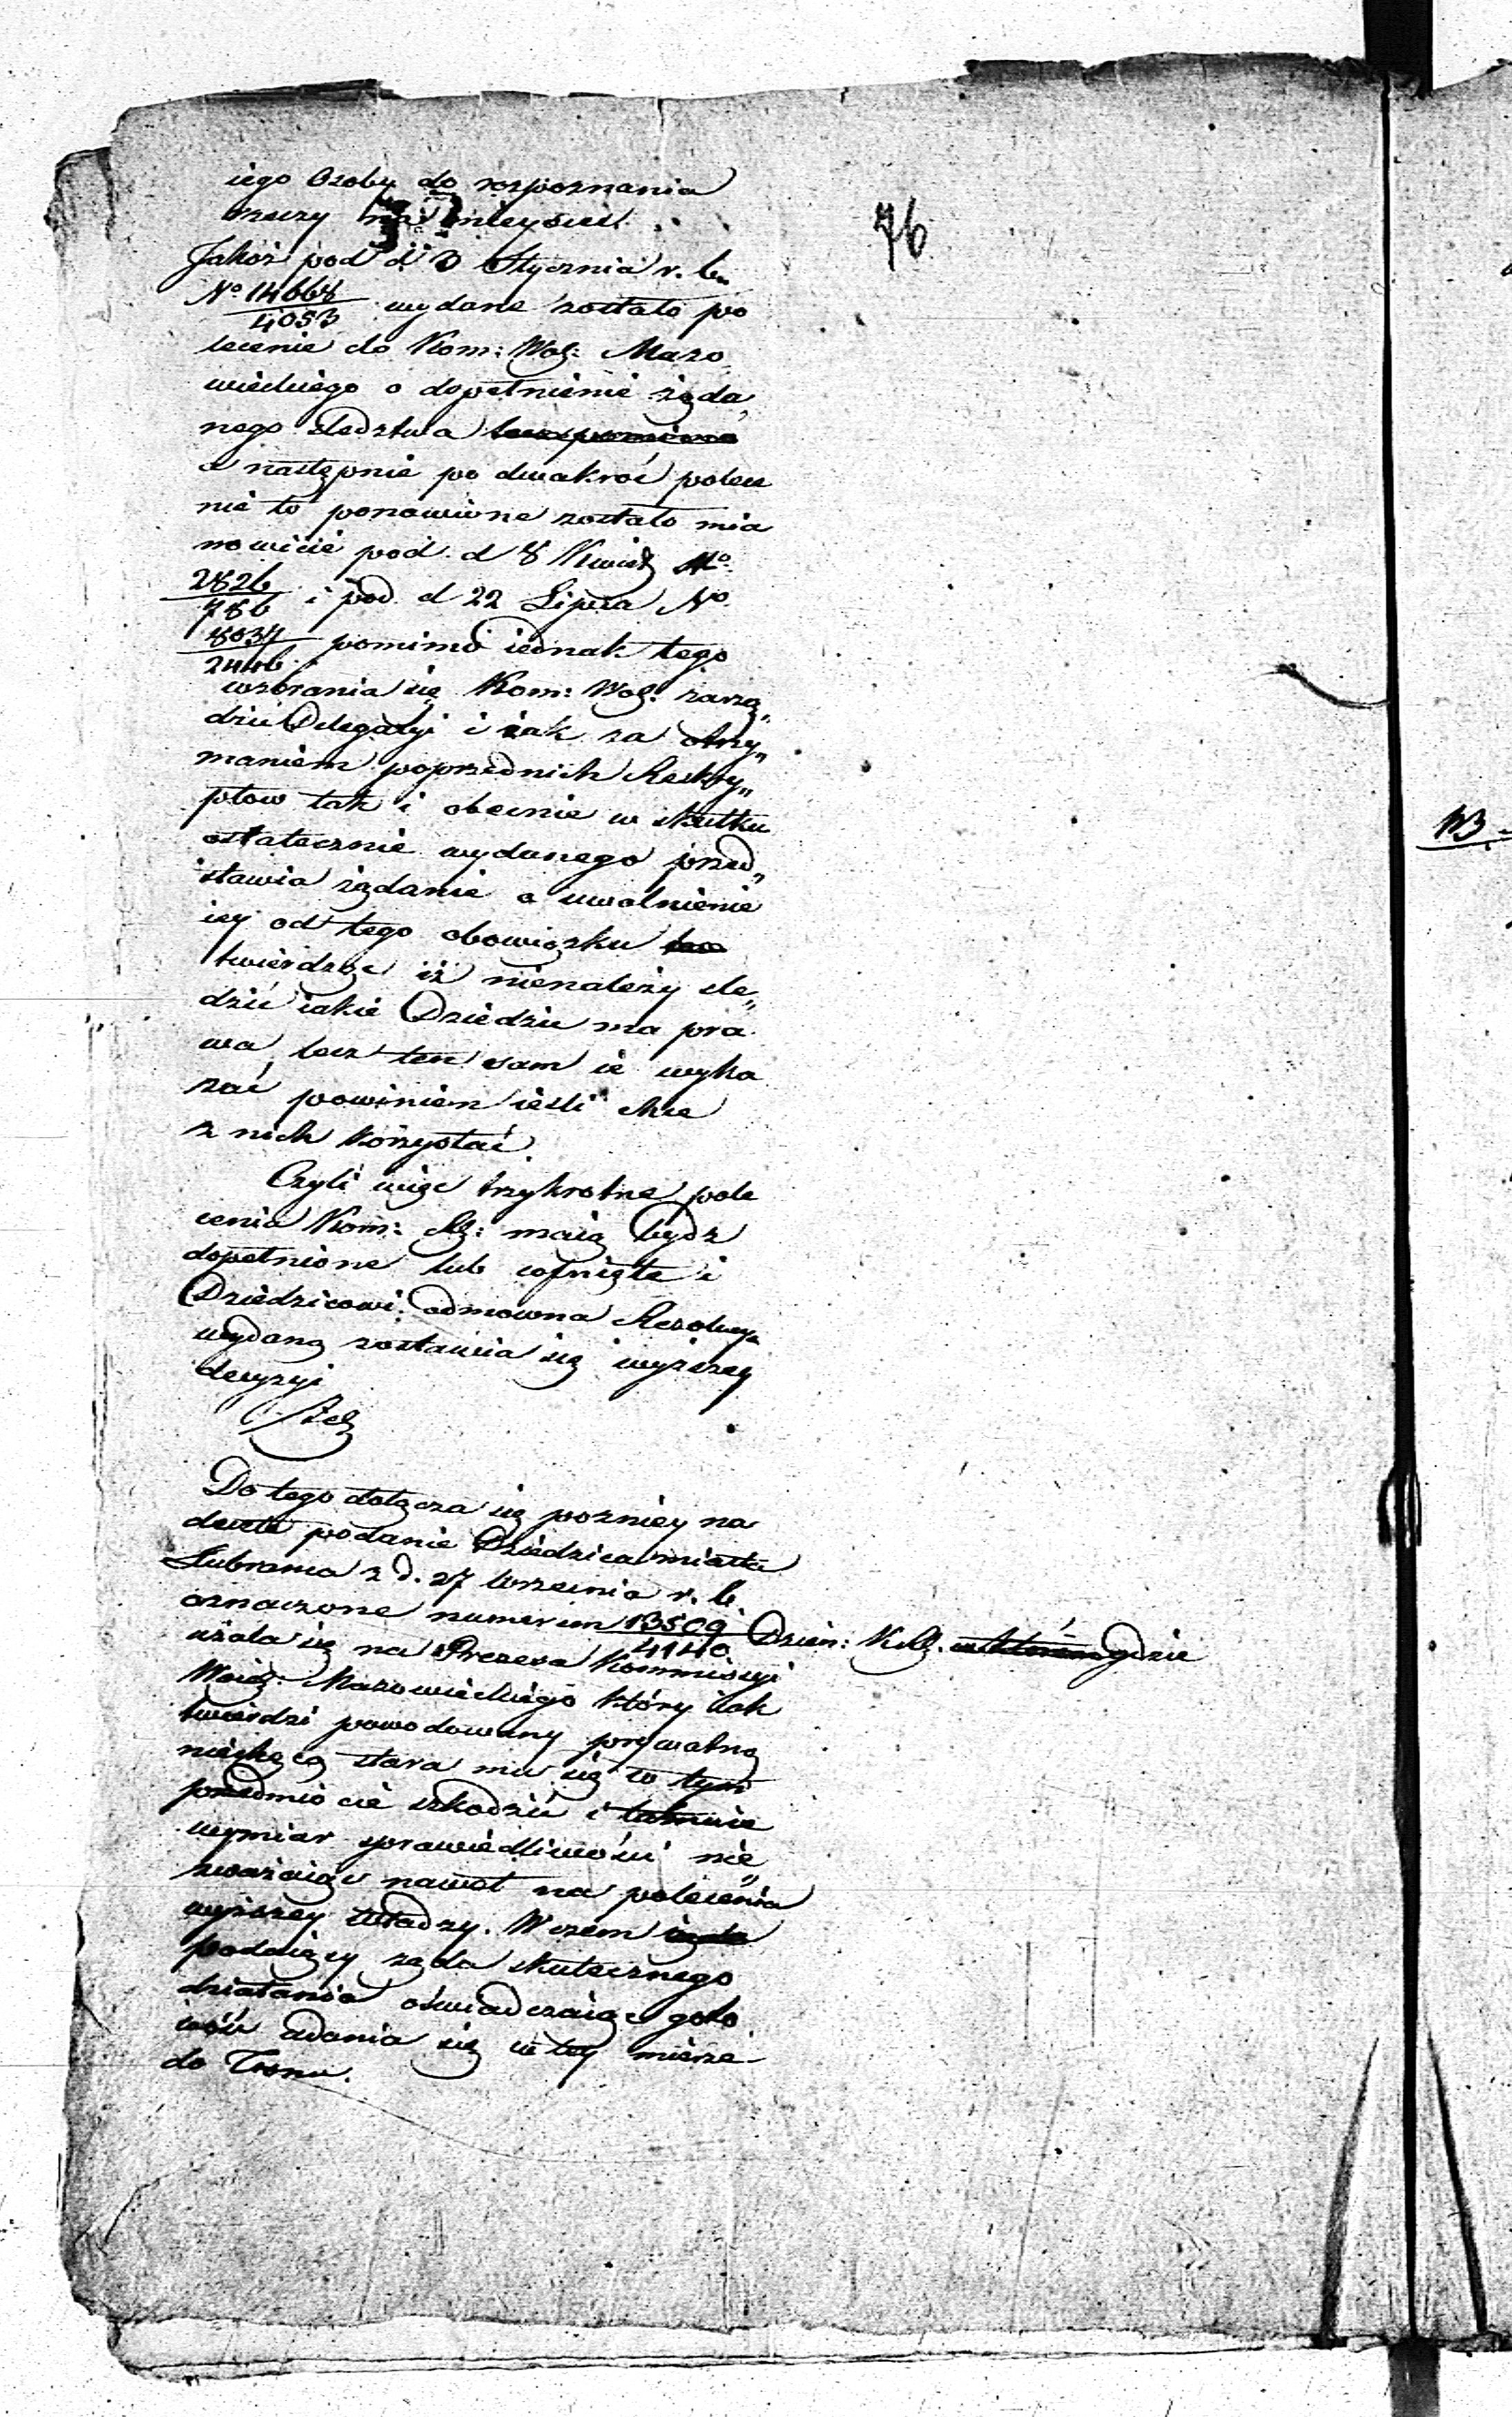 iego Osoby do rozpoznania
rzeczy na mieyscu.
76
Jakoż pod d 3 Stycznia r. b.
No 14668/4053 wydane zostało po
lecenie do Kom: Woj: Mazo
wieckiego o dopełnienie żąda„
nego śledztwa
a następnie po dwakroć polece
nie to ponowione zostało mia
nowicie pod d 8 Kwiet No
2826/786 i pod d 22 Lipca No
8034/2446 pomimo iednak tego
wzbrania się Kom: Woj: zarzą„
dzić Delegacyi i iak za otrzy„
maniem poprzednich Reskry„
ptow tak i obecnie w skutku
ostatecznie wydanego przed„
stawia żądanie o uwolnienie
iey od tego obowiązku
twierdząc iż nienależy śle„
dzić iakie Dziedzic ma pra
wa lecz ten sam ie wyka
zać powinien ieśli chce
z nich korzystać.
Czyli więc trzykrotne pole
cenia Kom: Rz: maią bydz
dopełnione lub cofnięte i
Dziedzicowi odmowna Rezolucya
wydaną zostawia się wyższey
decyzyi
Do tego dołącza się pozniey na
desłe podanie Dziedzica miasta
Lubrańca z d. 27 Września r. b.
oznaczone numerem 13509/4140 Dzien: K.R. w którém gdzie
użala się na Prezesa Kommissyi
Woie: Mazowieckiego który iak
twierdzi powodowany prywatną
niechęcią stara mu się w tym
przedmiocie szkodzić i tamuie
wymiar sprawiedliwości nie„
zważaiąc nawet na polecenia
wyższey Władzy. W czem
podaiący żąda skutecznego
działania oświadczaiąc goto
wość udania się w tey mierze
do Tronu.